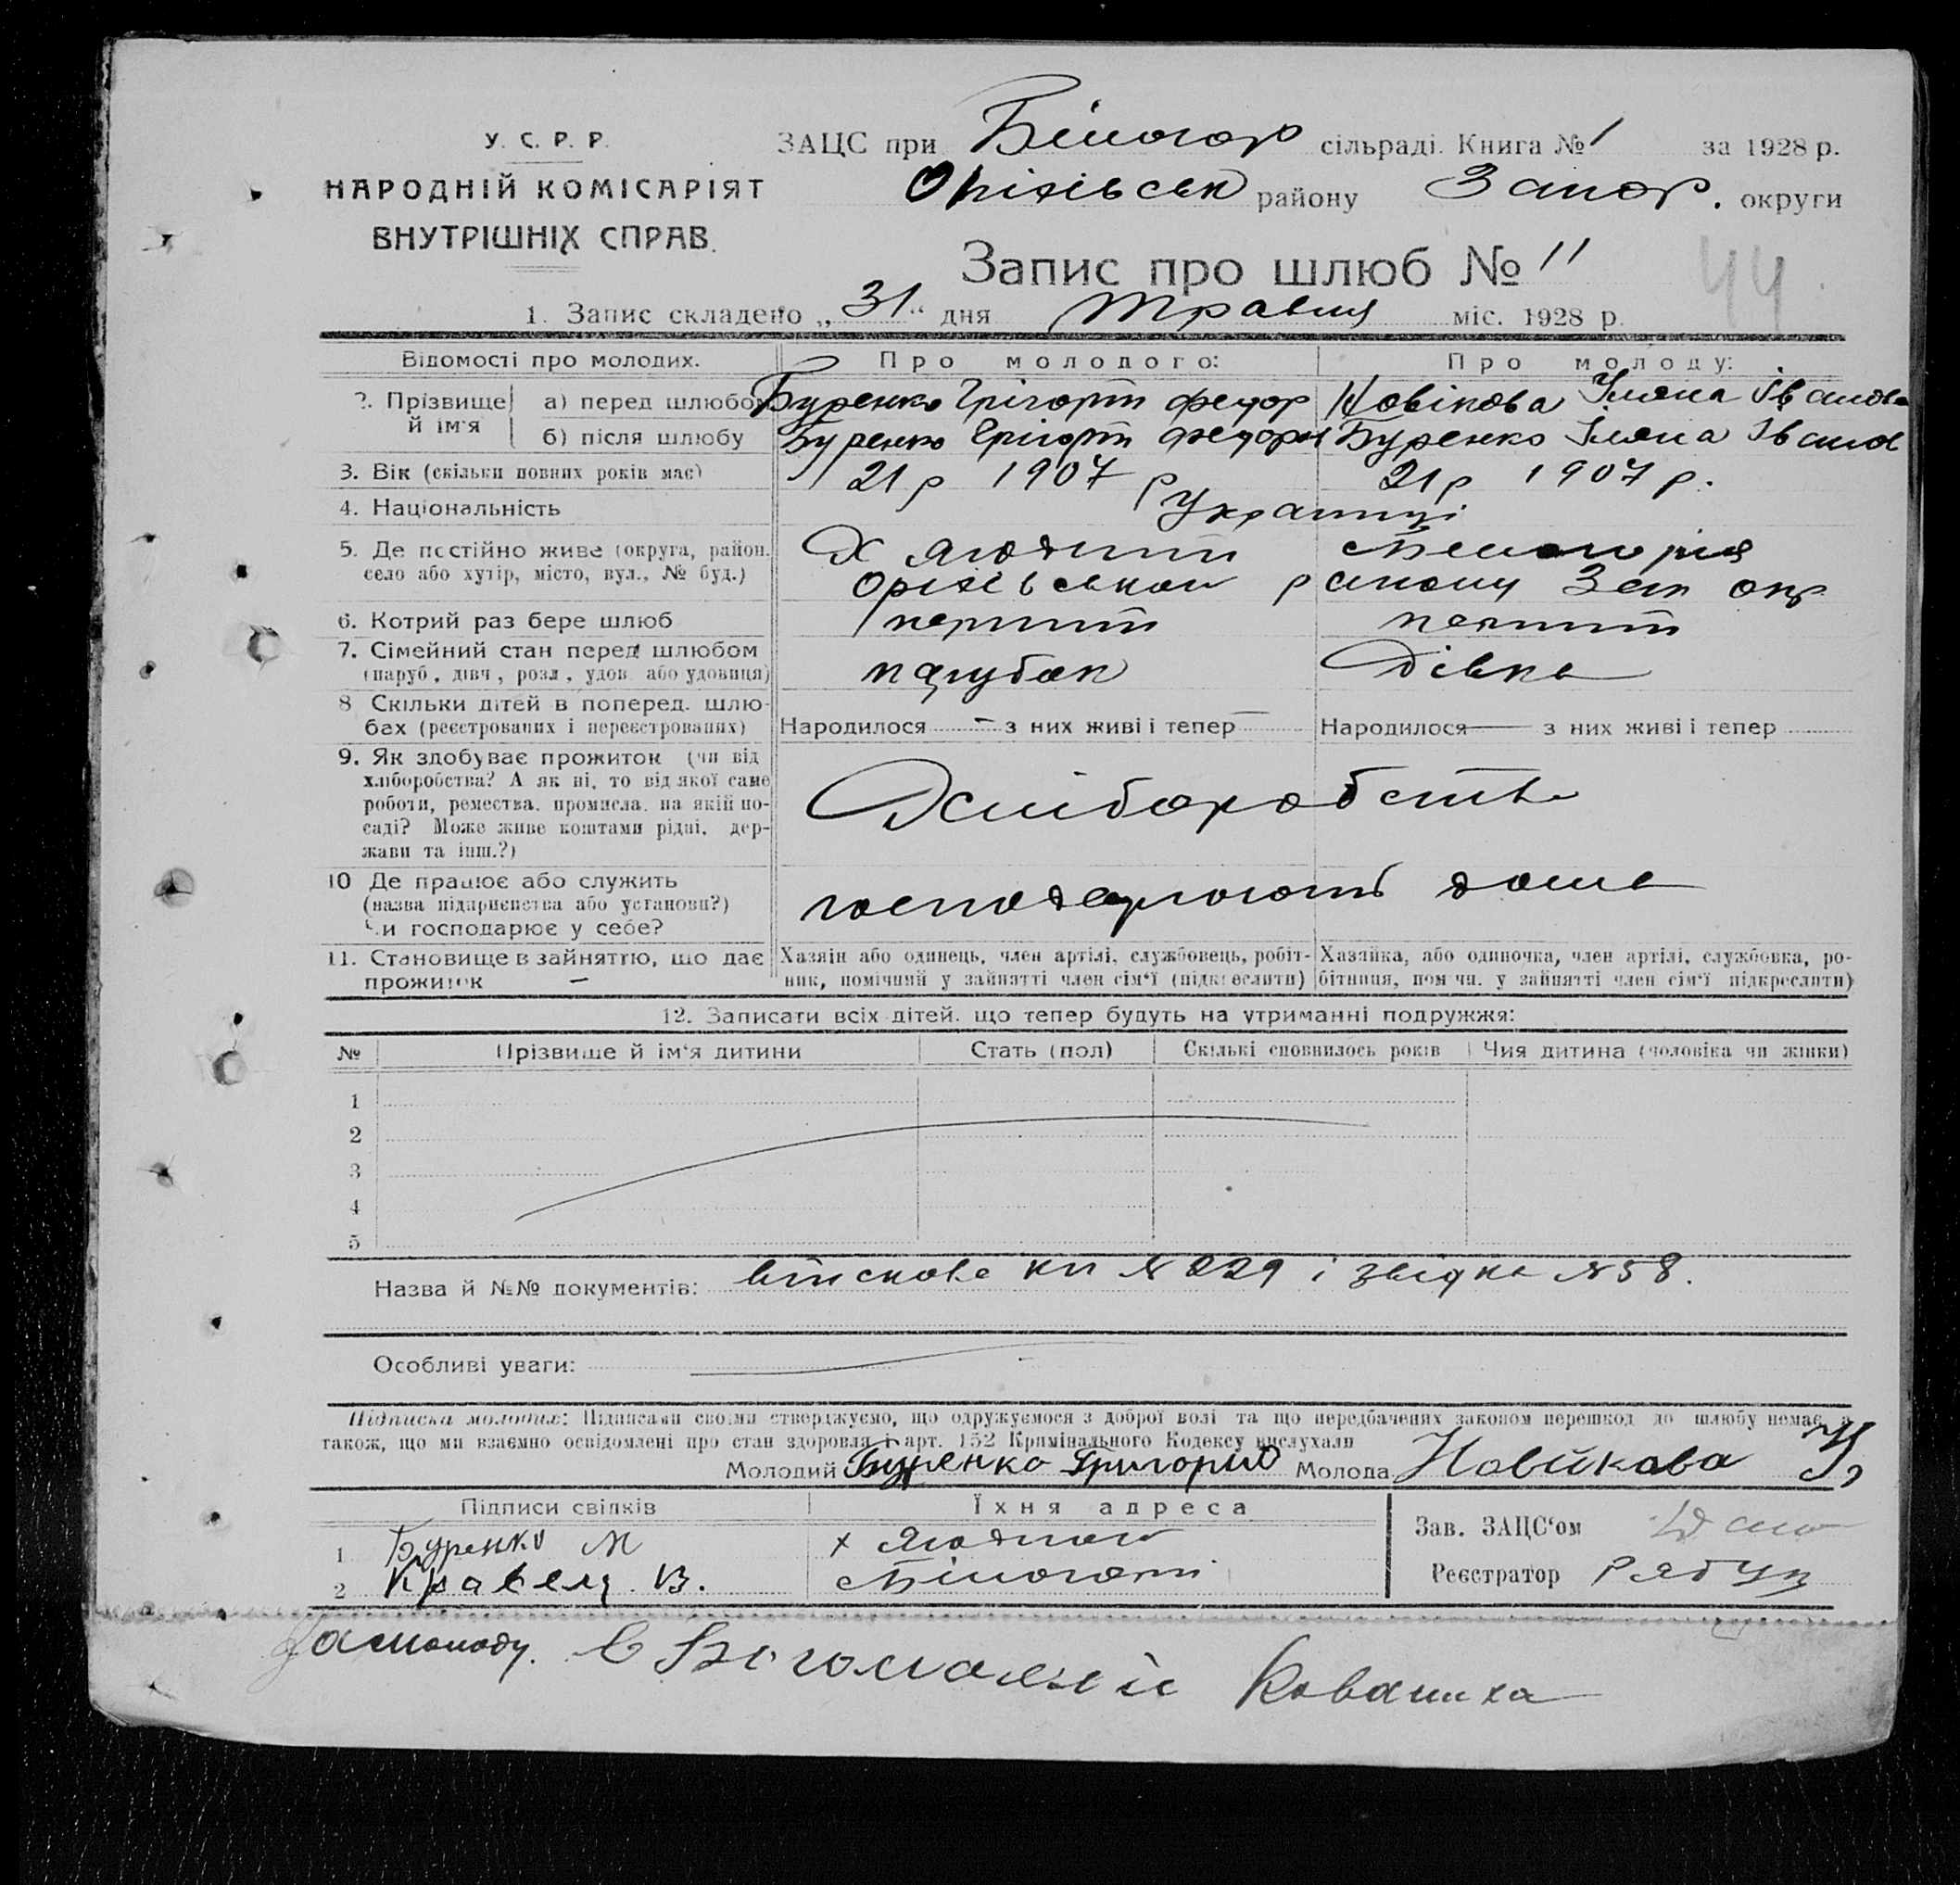 У. С. Р. Р.
НАРОДНІЙ КОМІСАРІЯТ
ВНУТРІШНІХ СПРАВ.
ЗАЦС при Білогор сільраді. Книга № 1 за 1928 р.
Оріхівськ району Запор. округи
Запис про шлюб № 11
44
1. Запис складено „31“ дня Травня міс. 1928 р.
Відомості про молодих. Про молодого: Про молоду:
2. Прізвище й ім'я
а) перед шлюбом Буренко Грігорій Федор Новікова Іванов
б) після шлюбу Буренко Грігорій Федоров Буренко Іванов
3. Вік (скільки повних років має) 21 р 1907 р 21 р 1907 р.
4. Національність Українці
5. Де постійно живе (округа, район, село або хутір, місто, вул., № буд.) Х Білогорія
Оріхівського району Зап окр
6. Котрий раз бере шлюб перший перший
7. Сімейний стан перед шлюбом (паруб., дівч., розл., удов. або удовиця) парубок дівка
8 Скільки дітей в поперед. шлюбах (реєстрованих і нереєстрованих) Народилося — з них живі і тепер — Народилося — з них живі і тепер
9. Як здобуває прожиток (чи від хліборобства? А як ні, то від якої саме роботи, ремества, промисла, на якій посаді? Може живе коштами рідні, держави та інш.?) Хліборобство
10 Де працює або служить (назва підприємства або установи?) Чи господарює у себе? господарюють дома
11. Становище в зайняттю, що дає прожиток — Хазяїн або одинець, член артілі, службовець, робітник, помічний у зайнятті член сім'ї (підкреслити) Хазяйка, або одиночка, член артілі, службовка, робітниця, помічн. у зайнятті член сім'ї підкреслити)
12. Записати всіх дітей, що тепер будуть на утриманні подружжя:
№ Прізвище й ім'я дитини Стать (пол) Скількі сповнилось років Чия дитина (чоловіка чи жінки)
1
2
3
4
5
Назва й №№ документів: військова кн № 229 і звідка № 58.
Особливі уваги:
Підписка молодих: Підписами своїми стверджуємо, що одружуємося з доброї волі та що передбачених законом перешкод до шлюбу немає, а
також, що ми взаємно освідомлені про стан здоровля і арт. 152 Кримінального Кодексу вислухали
Молодий Буренко Григорий Молода Новйкова У
Підписи свідків Їхня адреса
1 Буренко М х
2 Кравець В. Білогорії
Зав. ЗАЦС'ом
Реєстратор Рябцун